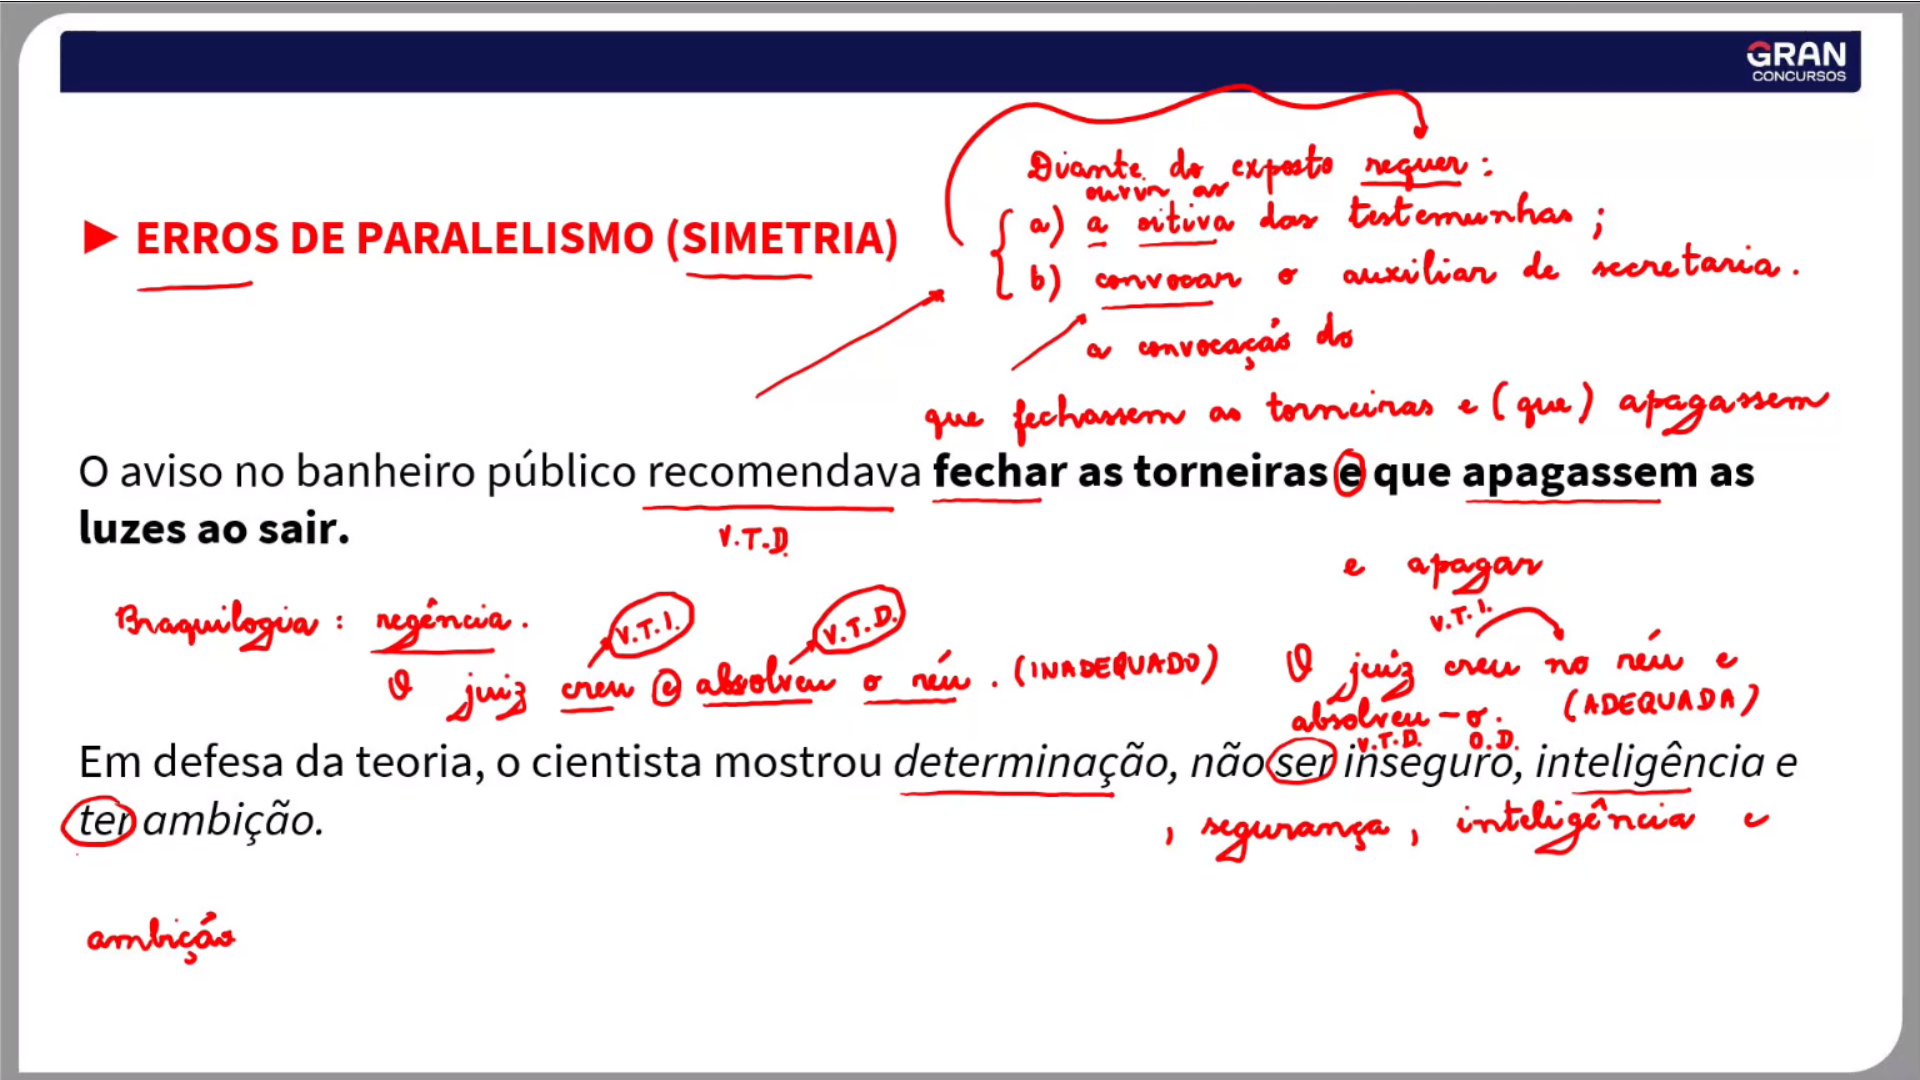 GRAN
CONCURSOS
Diante do exposto requer:
ouvir as
a) a oitiva das testemunhas;
► ERROS DE PARALELISMO (SIMETRIA)
b) convocar o auxiliar de secretaria.
a convocação do
que fechassem as torneiras e (que) apagassem
O aviso no banheiro público recomendava fechar as torneiras e que apagassem as
luzes ao sair.
V.T.D.
e apagar
Braquilogia: regência.
V.T.I.
V.T.D.
V.T.I.
O juiz creu e absolveu o réu. (INADEQUADO)
O juiz creu no réu e
absolveu-o. (ADEQUADA)
V.T.D. O.D.
Em defesa da teoria, o cientista mostrou determinação, não ser inseguro, inteligência e
ter ambição.
, segurança, inteligência e
ambição